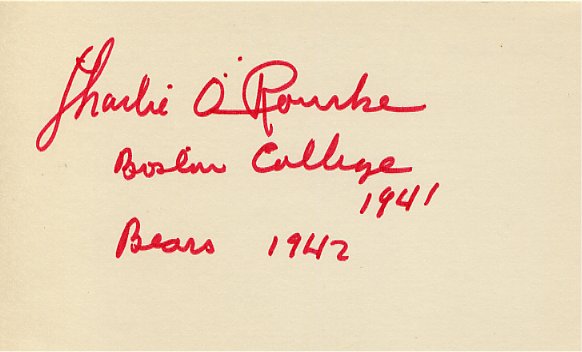 Charlie O'Rourke
Boston College
1941
Bears 1942